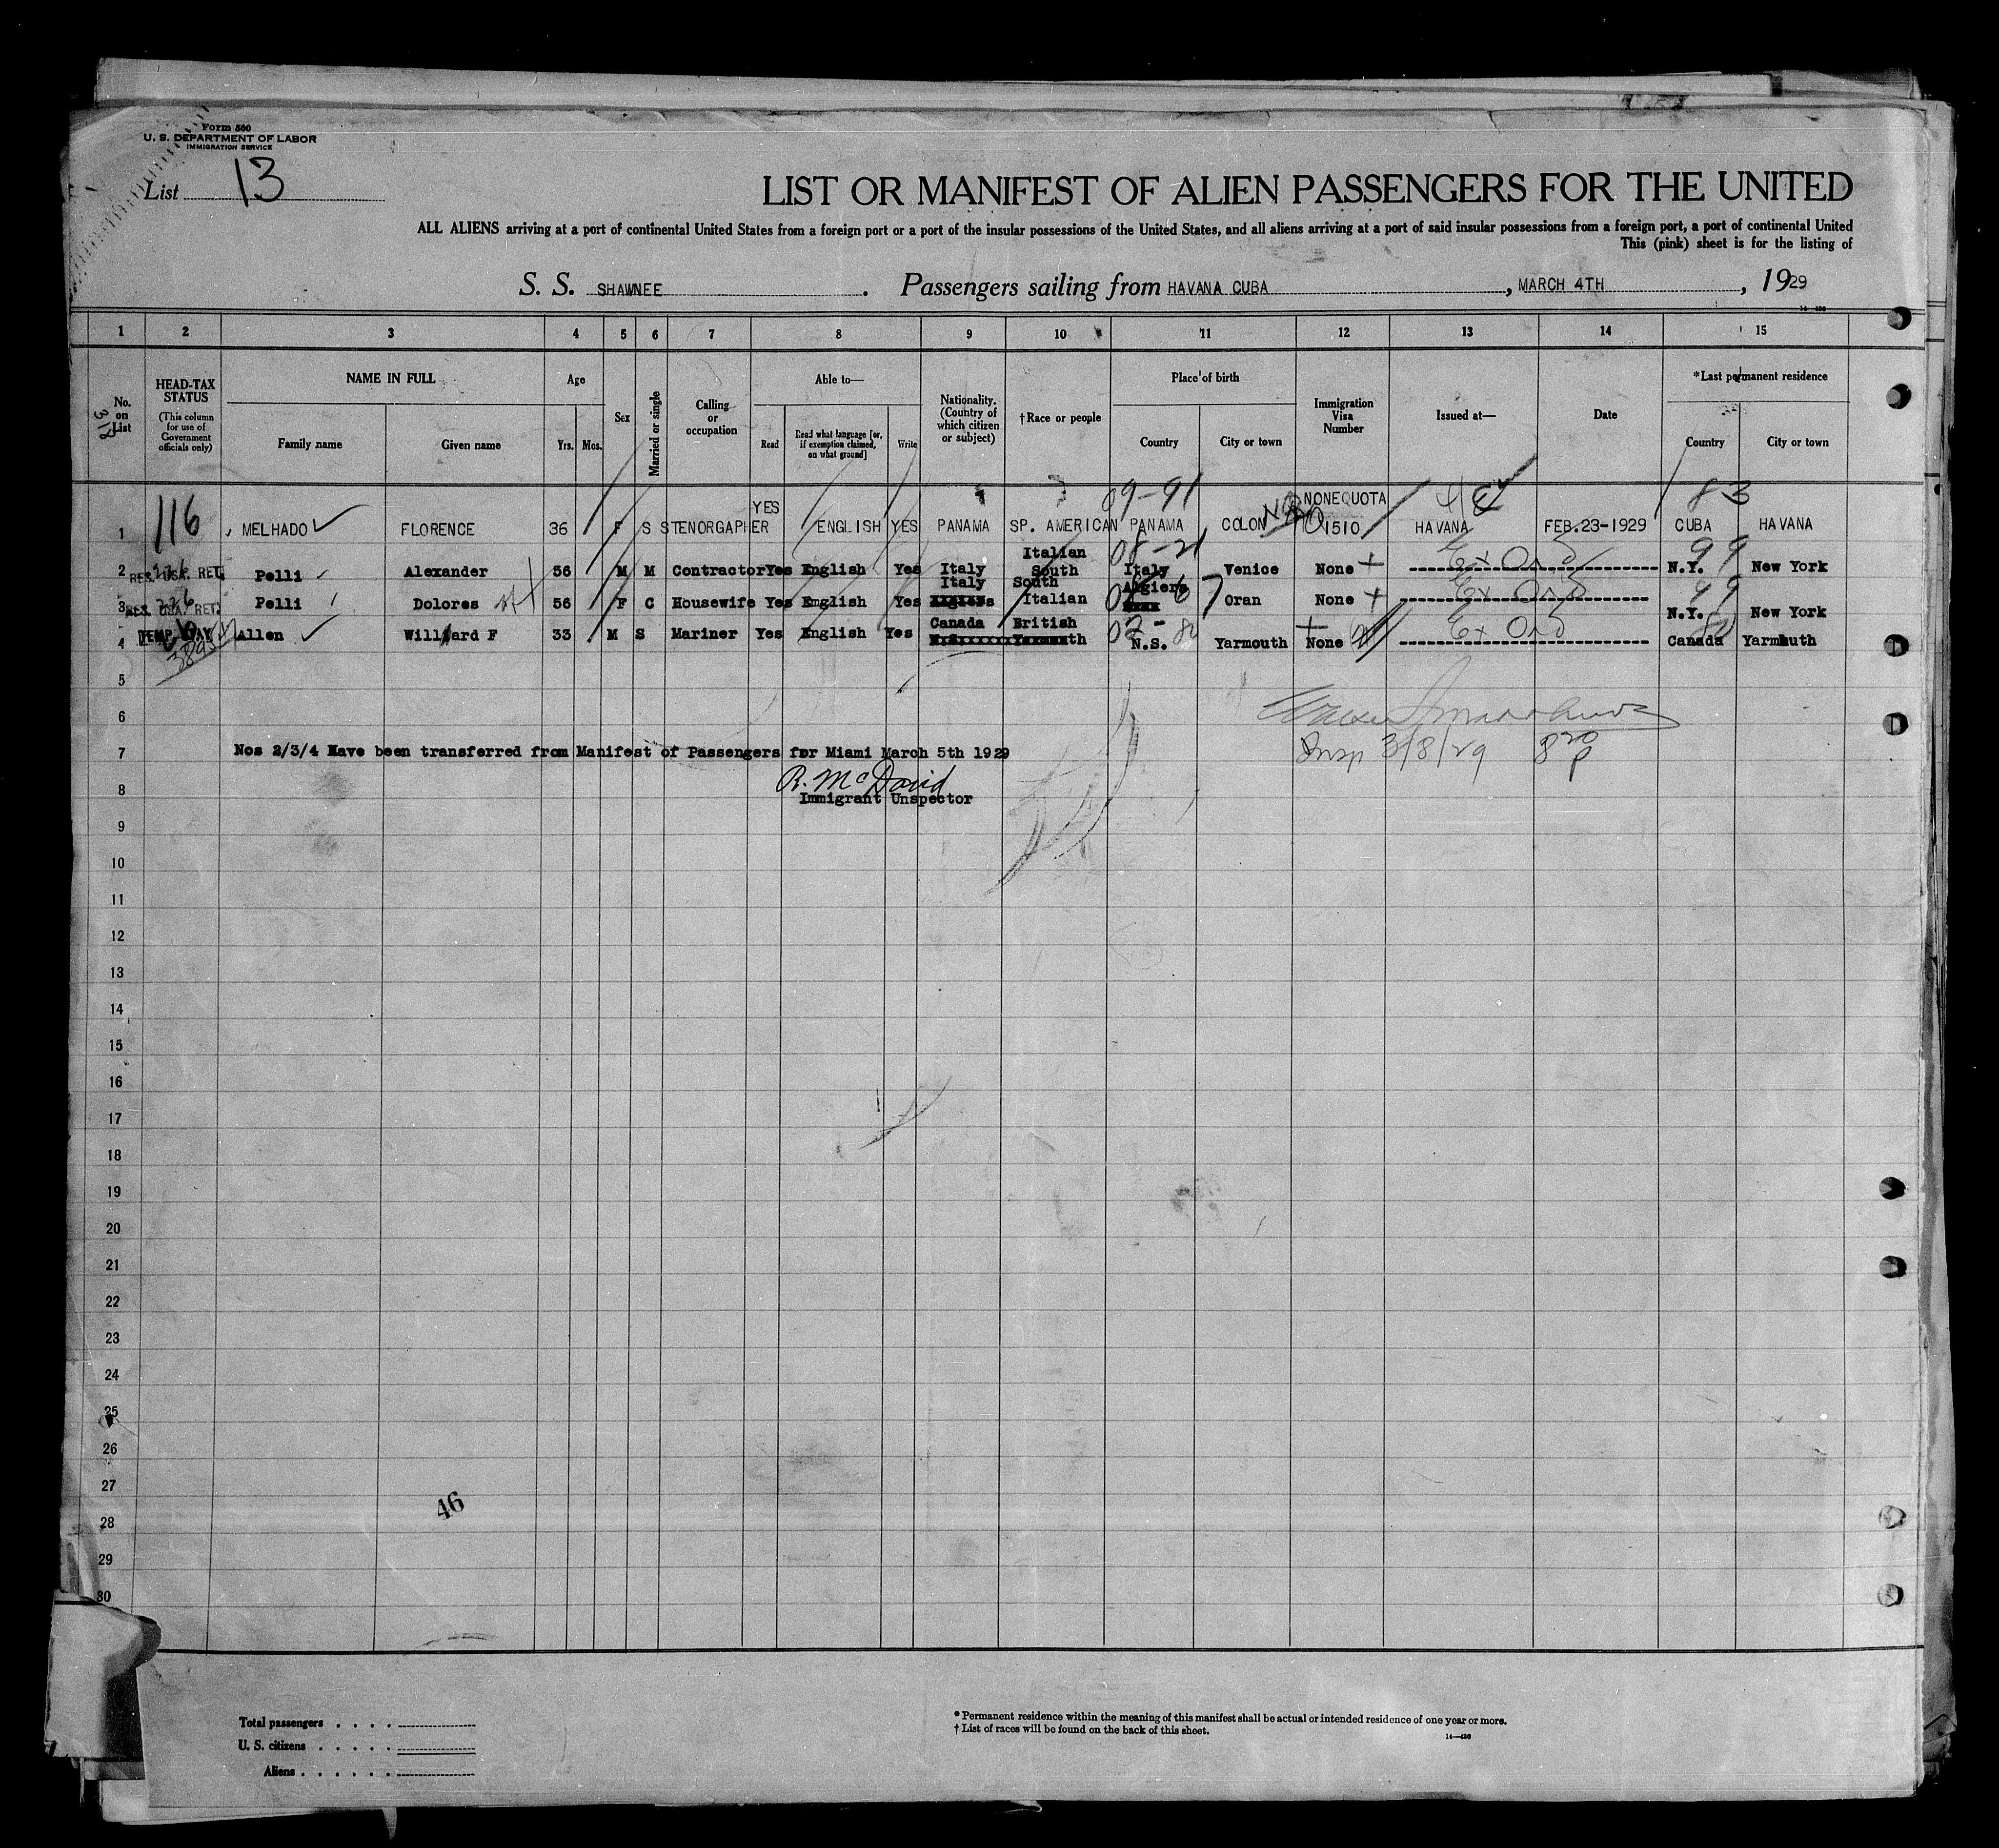 Form 500
U. S. DEPARTMENT OF LABOR
IMMIGRATION SERVICE
List 13
LIST OR MANIFEST OF ALIEN PASSENGERS FOR THE UNITED
ALL ALIENS arriving at a port of continental United States from a foreign port or a port of the insular possessions of the United States, and all aliens arriving at a port of said insular possessions from a foreign port, a port of continental United
This (pink) sheet is for the listing of
S. S. SHAWNEE. Passengers sailing from HAVANA CUBA, MARCH 4TH, 1929
1 2 3 4 5 6 7 8 9 10 11 12 13 14 15
No. on List
318
HEAD-TAX STATUS
(This column for use of Government officials only)
NAME IN FULL
Family name Given name
Age
Yrs. Mos.
Sex
Married or single
Calling or occupation
Able to—
Read Read what language [or, if exemption claimed, on what ground] Write
Nationality. (Country of which citizen or subject)
†Race or people
Place of birth
Country City or town
Immigration Visa Number
Issued at—
Date
*Last permanent residence
Country City or town
YES 09-91 NONEQUOTA 83
1 116 MELHADO FLORENCE 36 F S STENORGAPHER ENGLISH YES PANAMA SP. AMERICAN PANAMA COLON 1510 HAVANA FEB.23-1929 CUBA HAVANA
Italian 08-21 Ex Ord 99
2 RES. USA. RET. Pelli Alexander 56 M M Contractor Yes English Yes Italy South Italy Venice None N.Y. New York
Italy South Algiers Ex Ord 99
3 RES. USA. RET. Pelli Dolores 56 F C Housewife Yes English Yes Italian Oran None N.Y. New York
Canada British 02- Ex Ord
4 TEMP. STAY Allen Willard F 33 M S Mariner Yes English Yes N.S. Yarmouth None Canada Yarmouth
5
6
Insp 3/8/29 8 20 P
7 Nos 2/3/4 Have been transferred from Manifest of Passengers for Miami March 5th 1929
R. McDavid
8 Immigrant Unspector
9
10
11
12
13
14
15
16
17
18
19
20
21
22
23
24
25
26
27
46
28
29
30
Total passengers
U. S. citizens
Aliens
* Permanent residence within the meaning of this manifest shall be actual or intended residence of one year or more.
† List of races will be found on the back of this sheet.
14—430